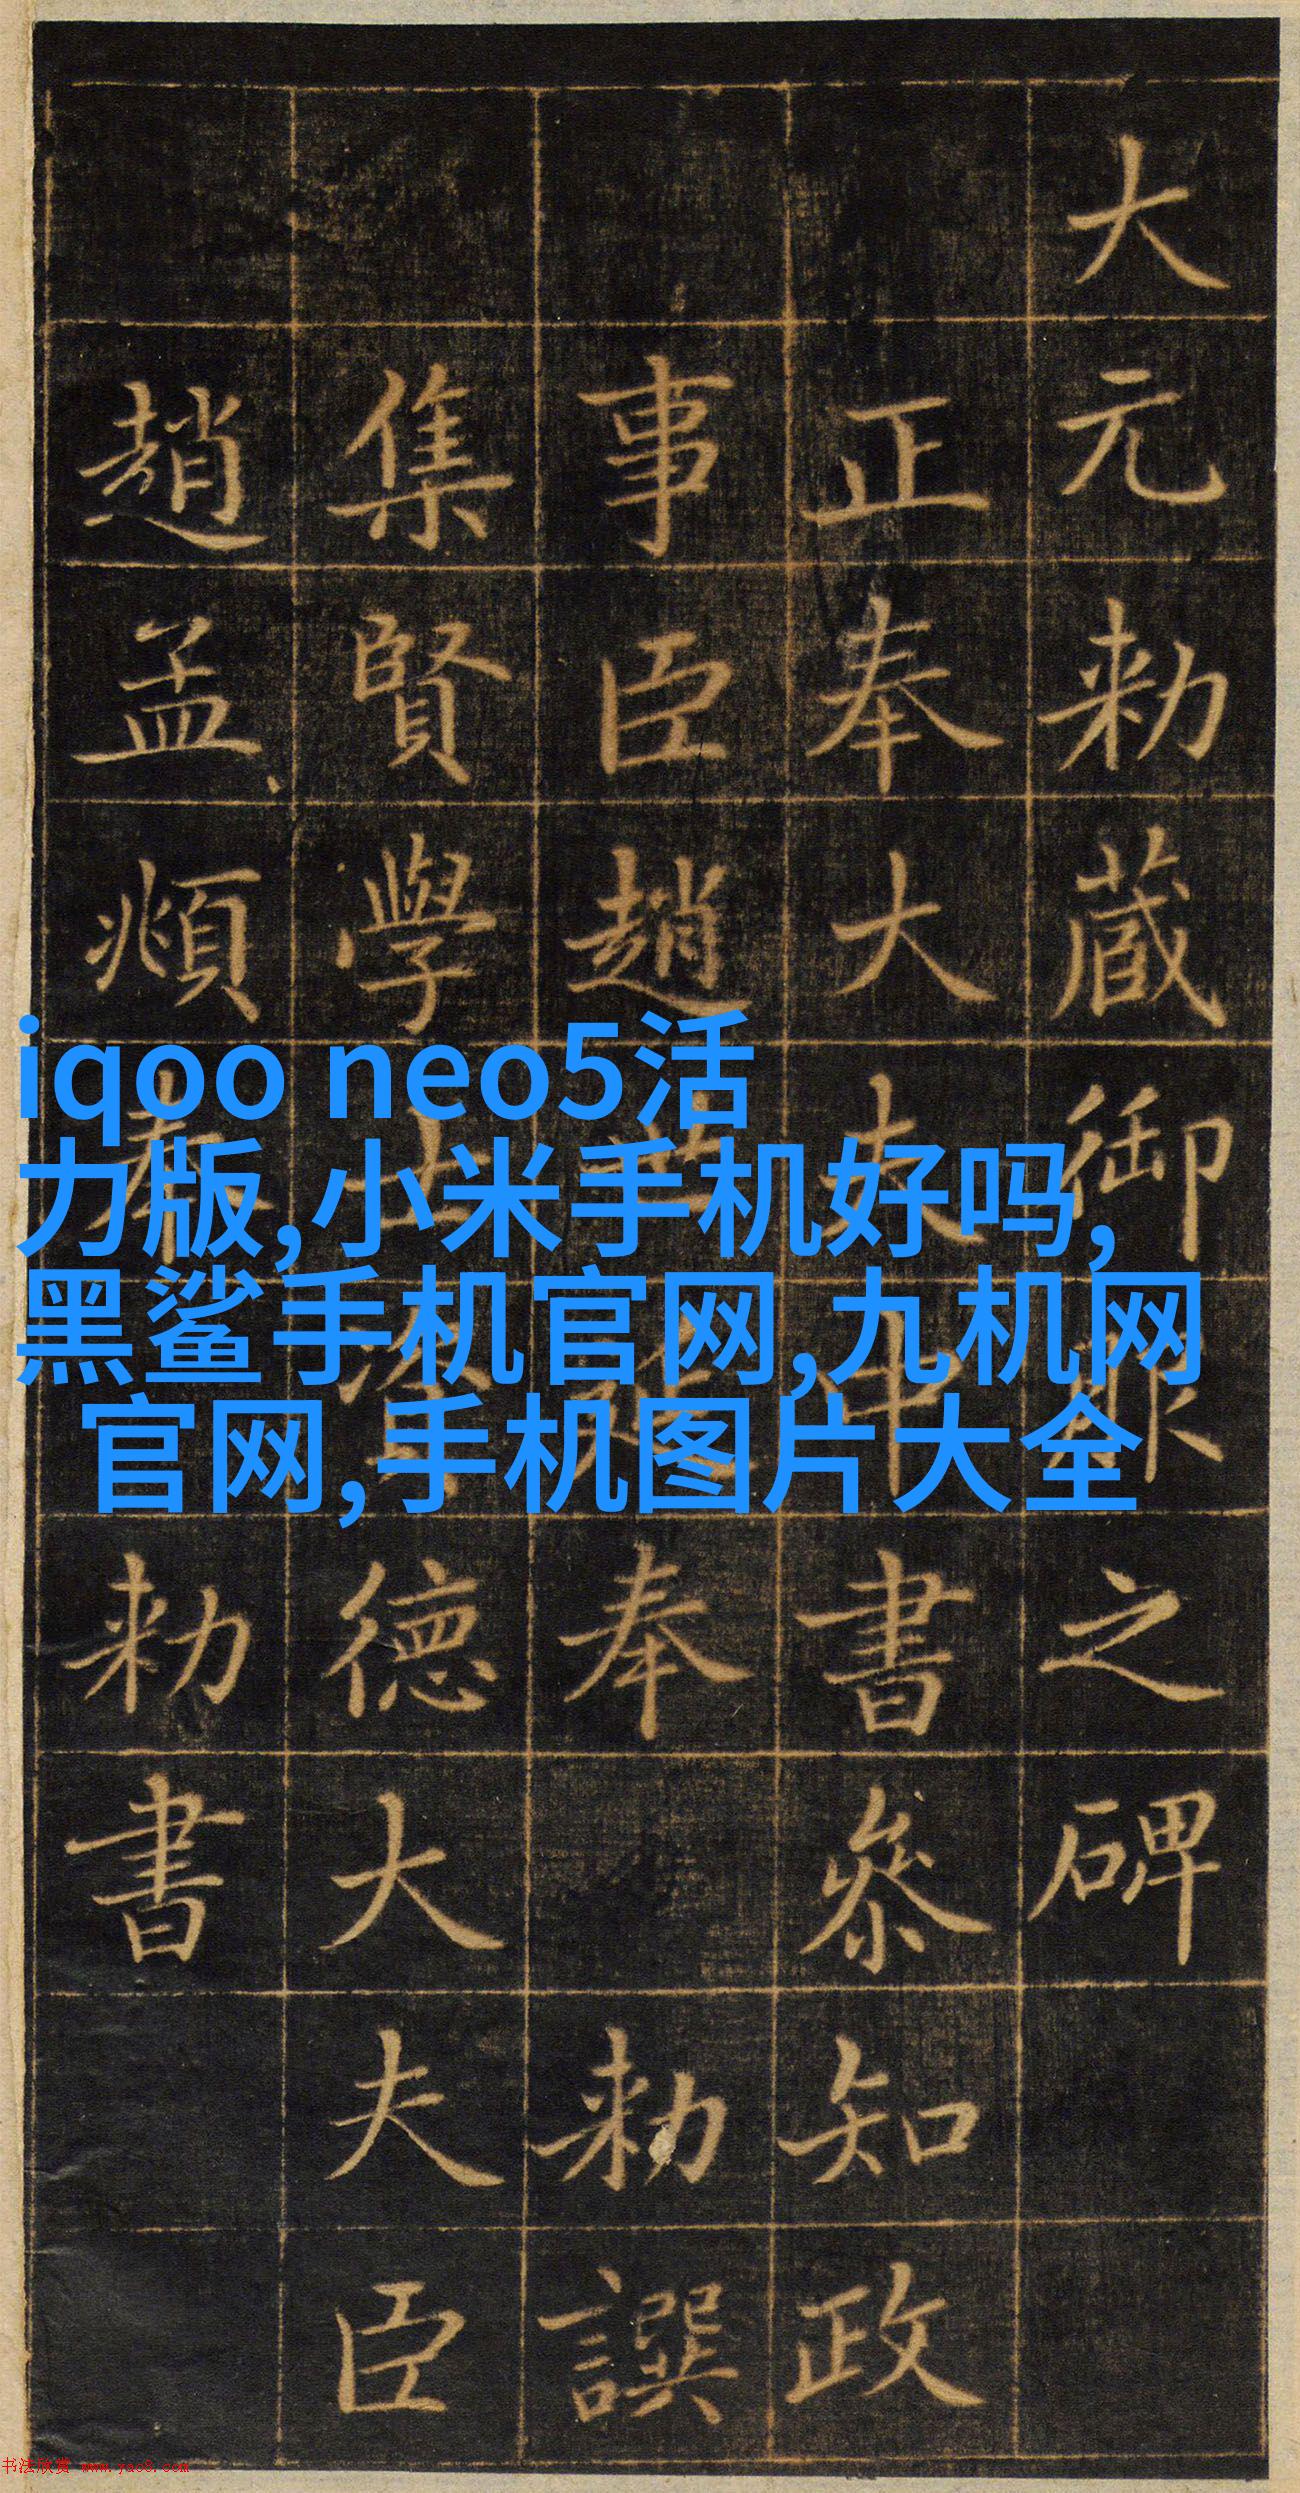 大元勑蔵御服之碑
正奉大夫中書叅知政
事臣趙世延奉勑譔
集賢學士資德大夫臣
趙孟頫奉勑書
iqoo neo5活
力版,小米手机好吗,
黑鲨手机官网,九机网
官网,手机图片大全
书法欣赏 www.yac8.com